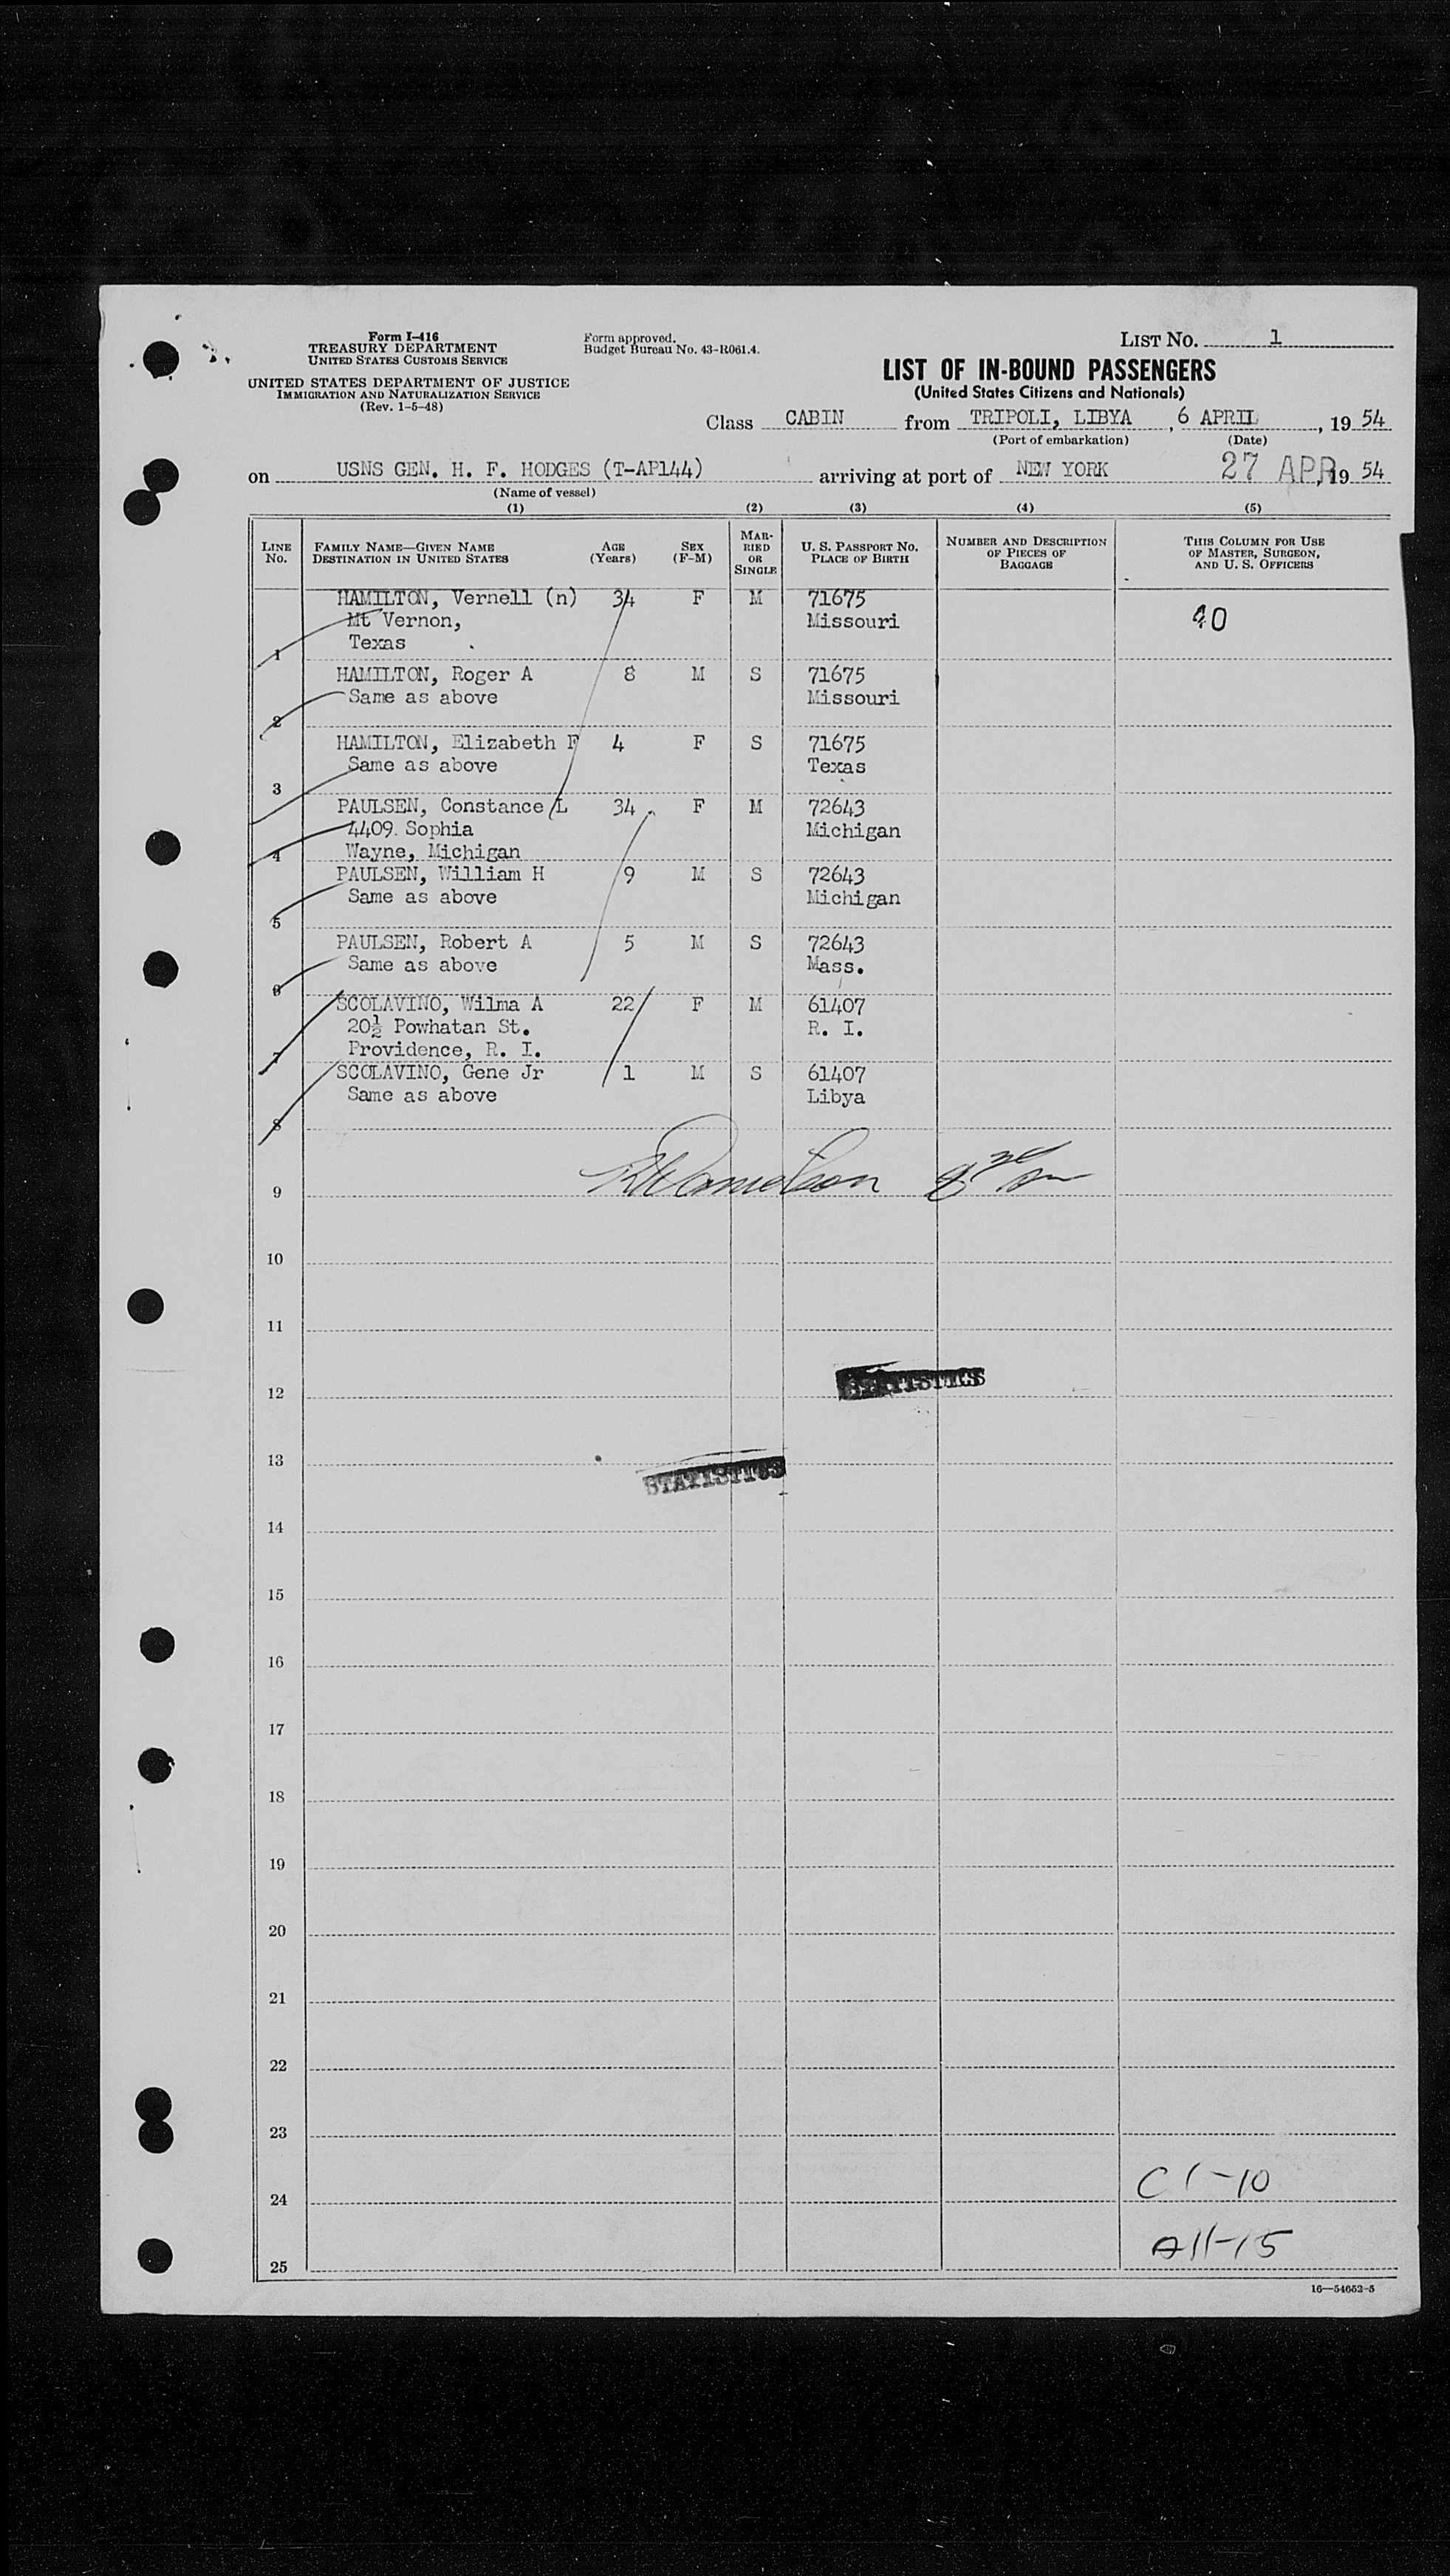 Form I-416
TREASURY DEPARTMENT
UNITED STATES CUSTOMS SERVICE
UNITED STATES DEPARTMENT OF JUSTICE
IMMIGRATION AND NATURALIZATION SERVICE
(Rev. 1-5-48)
Form approved.
Budget Bureau No. 43-R061.4.
LIST NO. 1
LIST OF IN-BOUND PASSENGERS
(United States Citizens and Nationals)
Class CABIN from TRIPOLI, LIBYA, 6 APRIL, 19 54
(Port of embarkation) (Date)
on USNS GEN. H. F. HODGES (T-AP144) arriving at port of NEW YORK 27 APR, 19 54
(Name of vessel)
(1) (2) (3) (4) (5)
LINE NO. FAMILY NAME—GIVEN NAME DESTINATION IN UNITED STATES AGE (Years) SEX (F-M) MARRIED OR SINGLE U. S. PASSPORT NO. PLACE OF BIRTH NUMBER AND DESCRIPTION OF PIECES OF BAGGAGE THIS COLUMN FOR USE OF MASTER, SURGEON, AND U. S. OFFICERS
HAMILTON, Vernell (n) 34 F M 71675
Mt Vernon, Missouri
1 Texas
HAMILTON, Roger A 8 M S 71675
Same as above Missouri
2
HAMILTON, Elizabeth F 4 F S 71675
Same as above Texas
3
PAULSEN, Constance L 34 F M 72643
4409 Sophia Michigan
4 Wayne, Michigan
PAULSEN, William H 9 M S 72643
Same as above Michigan
5
PAULSEN, Robert A 5 M S 72643
Same as above Mass.
6
SCOLAVINO, Wilma A 22 F M 61407
20½ Powhatan St. R. I.
7 Providence, R. I.
SCOLAVINO, Gene Jr 1 M S 61407
Same as above Libya
8
9
10
11
12 STATISTICS
13 STATISTICS
14
15
16
17
18
19
20
21
22
23
24 C 1-10
25 A11-15
16—54652-5